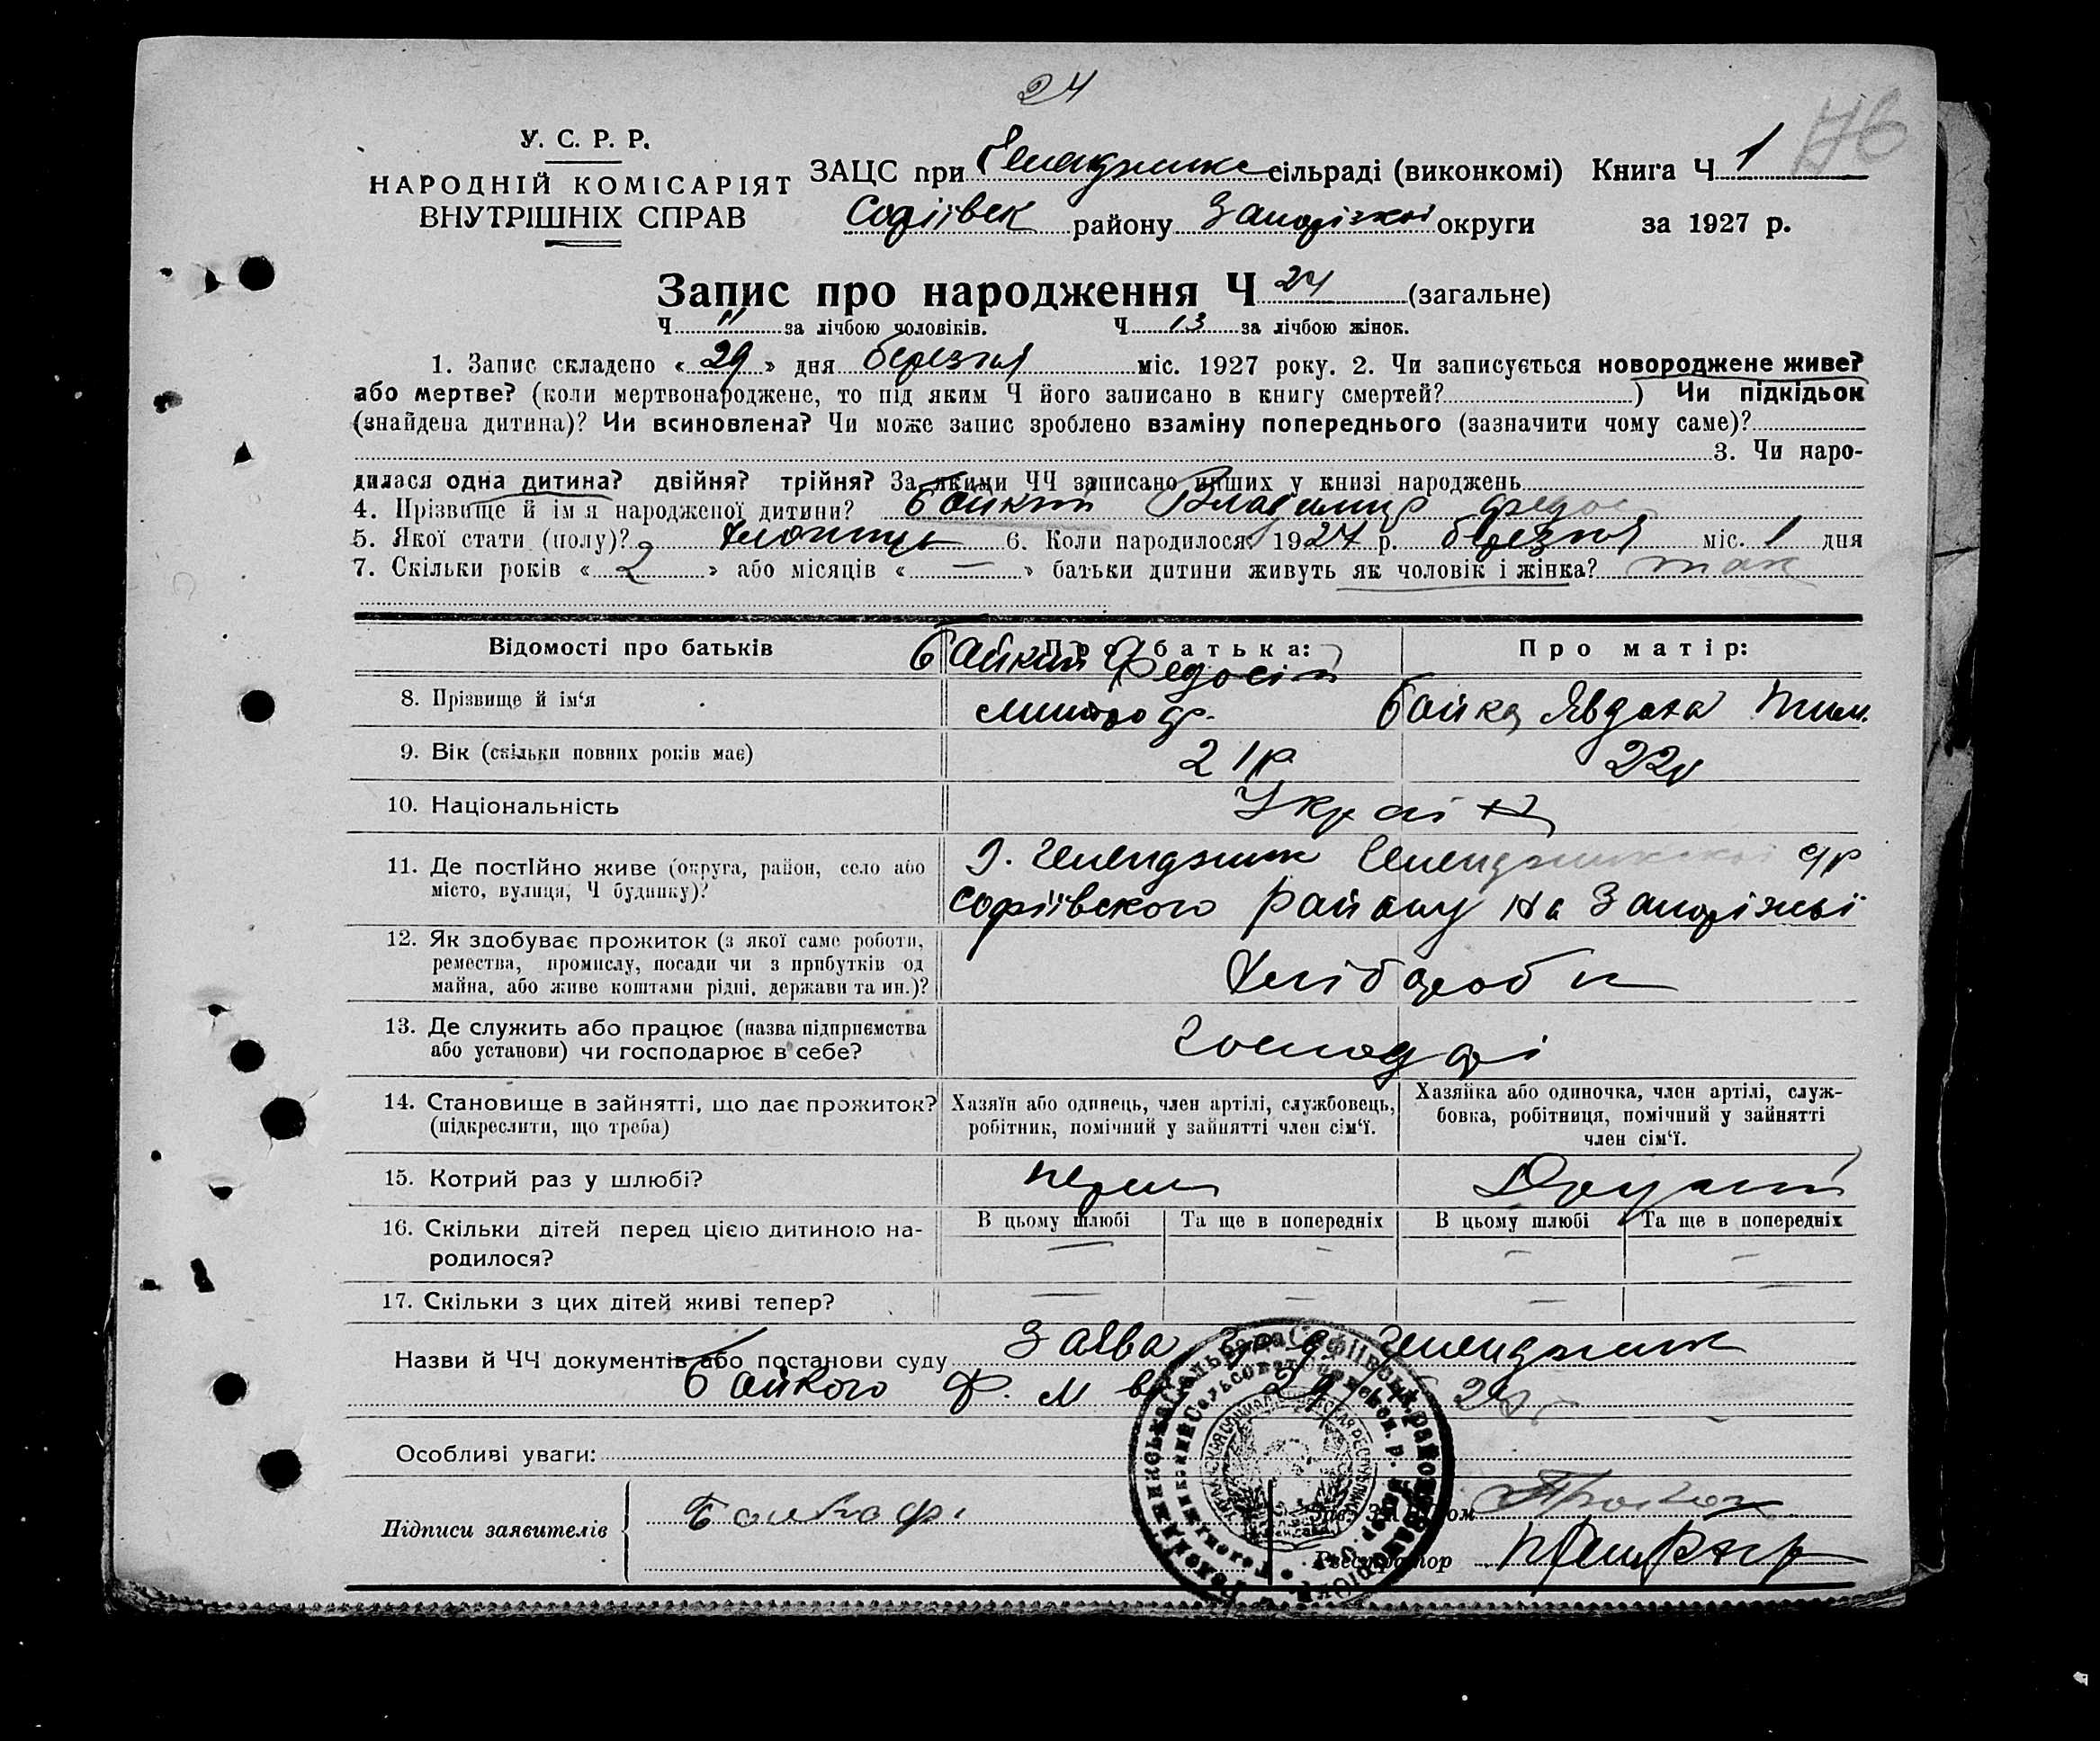 24
176
У. С. Р. Р.
НАРОДНІЙ КОМІСАРІЯТ
ВНУТРІШНІХ СПРАВ
ЗАЦС при сільраді (виконкомі) Книга Ч 1
Софіївськ району Запорізької округи за 1927 р.
Запис про народження Ч 24 (загальне)
Ч 11 за лічбою чоловіків. Ч 13 за лічбою жінок.
1. Запис складено « 29 » дня березня міс. 1927 року. 2. Чи записується новороджене живе?
або мертве? (коли мертвонароджене, то під яким Ч його записано в книгу смертей? ) Чи підкідьок
(знайдена дитина)? Чи всиновлена? Чи може запис зроблено взаміну попереднього (зазначити чому саме)?
3. Чи наро-
дилася одна дитина? двійня? трійня? За якими ЧЧ записано инших у книзі народжень
4. Прізвище й імя народженої дитини? Байкий Владимир Федос
5. Якої стати (полу)? хлопець 6. Коли народилося? 1927 р. березня міс. 1 дня
7. Скільки років « 2 » або місяців « — » батьки дитини живуть як чоловік і жінка? так
Відомості про батьків
Про батька:
Про матір:
8. Прізвище й ім‘я
Байкий Федосій
Байка Явдоха Тим.
9. Вік (скільки повних років має)
21р
22р
10. Національність
Україн
11. Де постІйно живе (округа, район, село або
місто, вулиця, Ч будинку)?
Геленджик с/р
Софіївского району на Запоріжьї
12. Як здобуває прожиток (з якої саме роботи,
ремества, промислу, посади чи з прибутків од
майна, або живе коштами рідні, держави та ин.)?
Хлібороби
13. Де служить або працює (назва підприємства
або установи) чи господарює в себе?
господарі
14. Становище в зайнятті, що дає прожиток?
(підкреслити, що треба)
Хазяїн або одинець, член артілі, службовець,
робітник, помічний у зайнятті член сім‘ї.
Хазяйка або одиночка, член артілі, служ-
бовка, робітниця, помічний у зайнятті
член сім‘ї.
15. Котрий раз у шлюбі?
перш
Другий
16. Скільки дітей перед цією дитиною на-
родилося?
В цьому шлюбі Та ще в попередніх В цьому шлюбі Та ще в попередніх
— — — —
17. Скільки з цих дітей живі тепер?
— — — —
Назви й ЧЧ документів або постанови суду Заява Геленджик
Байкого Ф. М
Особливі уваги:
Підписи заявителів
Байко Ф.
Зав. ЗАЦСом
Реєстратор